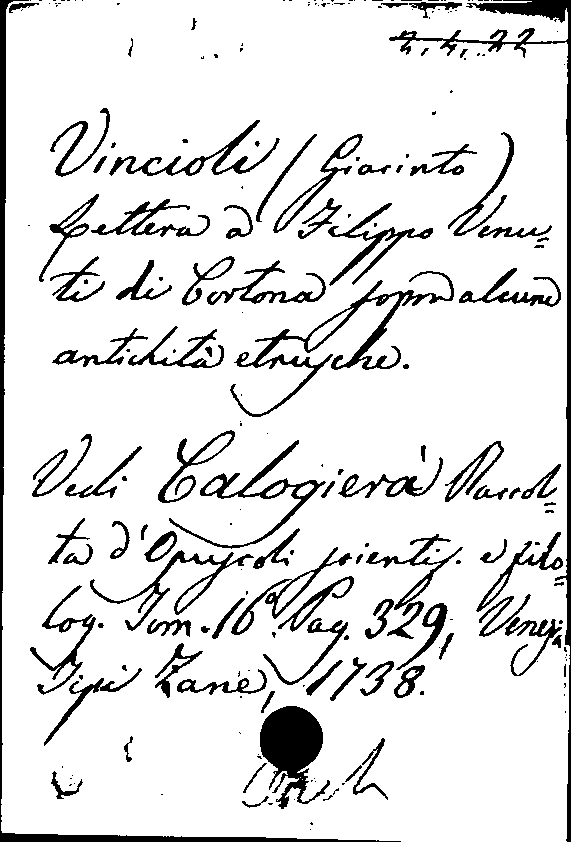 2.4.22
Vincioli (Giacinto)
Lettera a Filippo Venu=
ti di Cortona sopra alcune
antichità etrusche.
Vedi Calogierà Raccol=
ta d'Opuscoli scientif. e filo=
log. Tom. 16º. Pag. 329, Venezia
Tipi Zane, 1738.